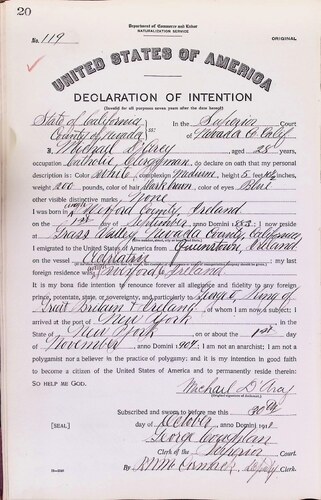 20
Department of Commerce and Labor
NATURALIZATION SERVICE
No. 119
ORIGINAL
UNITED STATES OF AMERICA
DECLARATION OF INTENTION
(Invalid for all purposes seven years after the date hereof)
State of California
County of Nevada ss:
In the Superior Court
of Nevada Co. Calif
I, Michael D'Arcy aged 28 years,
occupation Catholic Clergyman, do declare on oath that my personal
description is: Color White, complexion Medium, height 5 feet inches,
weight 200 pounds, color of hair Dark brown, color of eyes Blue
other visible distinctive marks None
I was born in Wexford County, Ireland
on the 1st day of September, anno Domini 1883; I now reside
at Grass Valley, Nevada County, California
I emigrated to the United States of America from Queenstown, Ireland
on the vessel ; my last
foreign residence was Wexford Co Ireland
It is my bona fide intention to renounce forever all allegiance and fidelity to any foreign
prince, potentate, state, or sovereignty, and particularly to George 5, King of
Great Britain & Ireland, of whom I am now a subject; I
arrived at the port of New York, in the
State of New York on or about the 1st day
of November, anno Domini 1904; I am not an anarchist; I am not a
polygamist nor a believer in the practice of polygamy; and it is my intention in good faith
to become a citizen of the United States of America and to permanently reside therein:
SO HELP ME GOD.
Michael D'Arcy
(Original signature of declarant)
Subscribed and sworn to before me this 30th
[SEAL] day of October, anno Domini 1911
George Coughlan
Clerk of the Superior Court.
By Deputy Clerk.